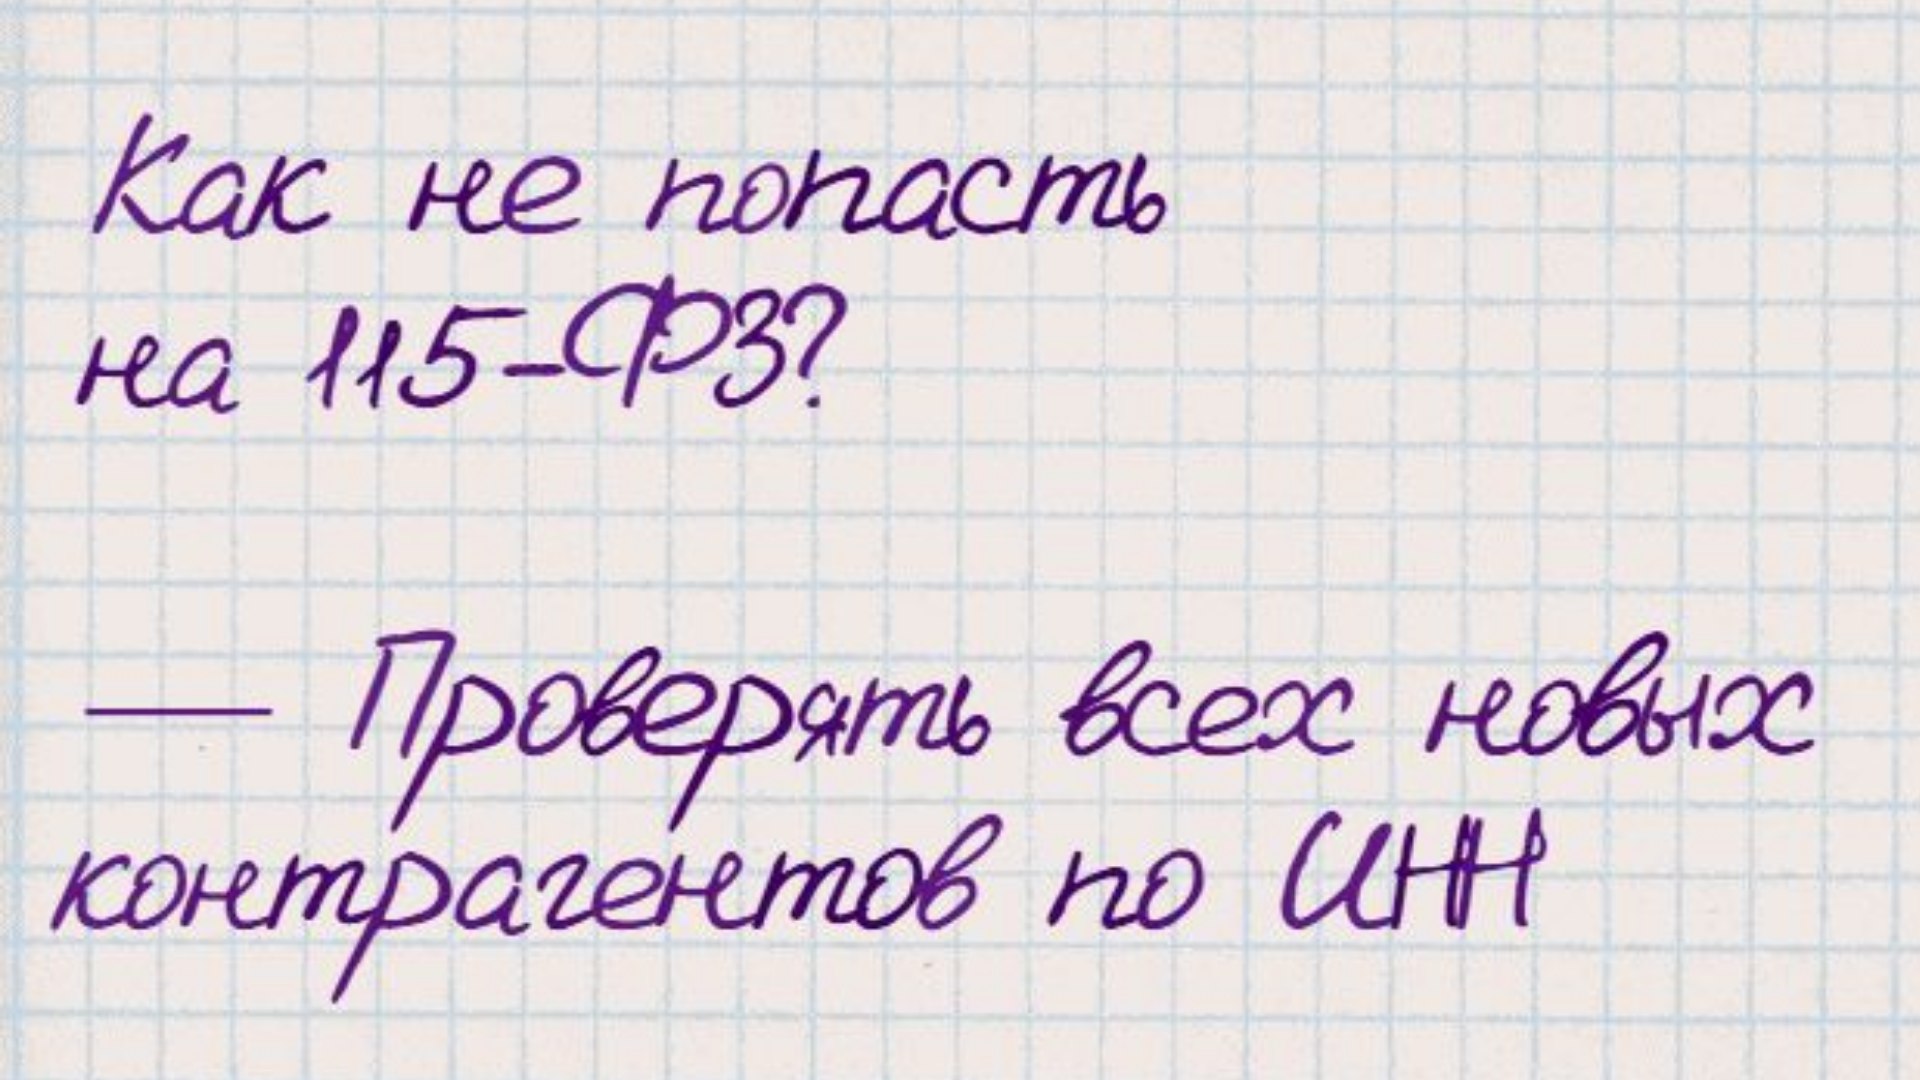 Как не попасть
на 115-ФЗ?
— Проверять всех новых
контрагентов по ИНН